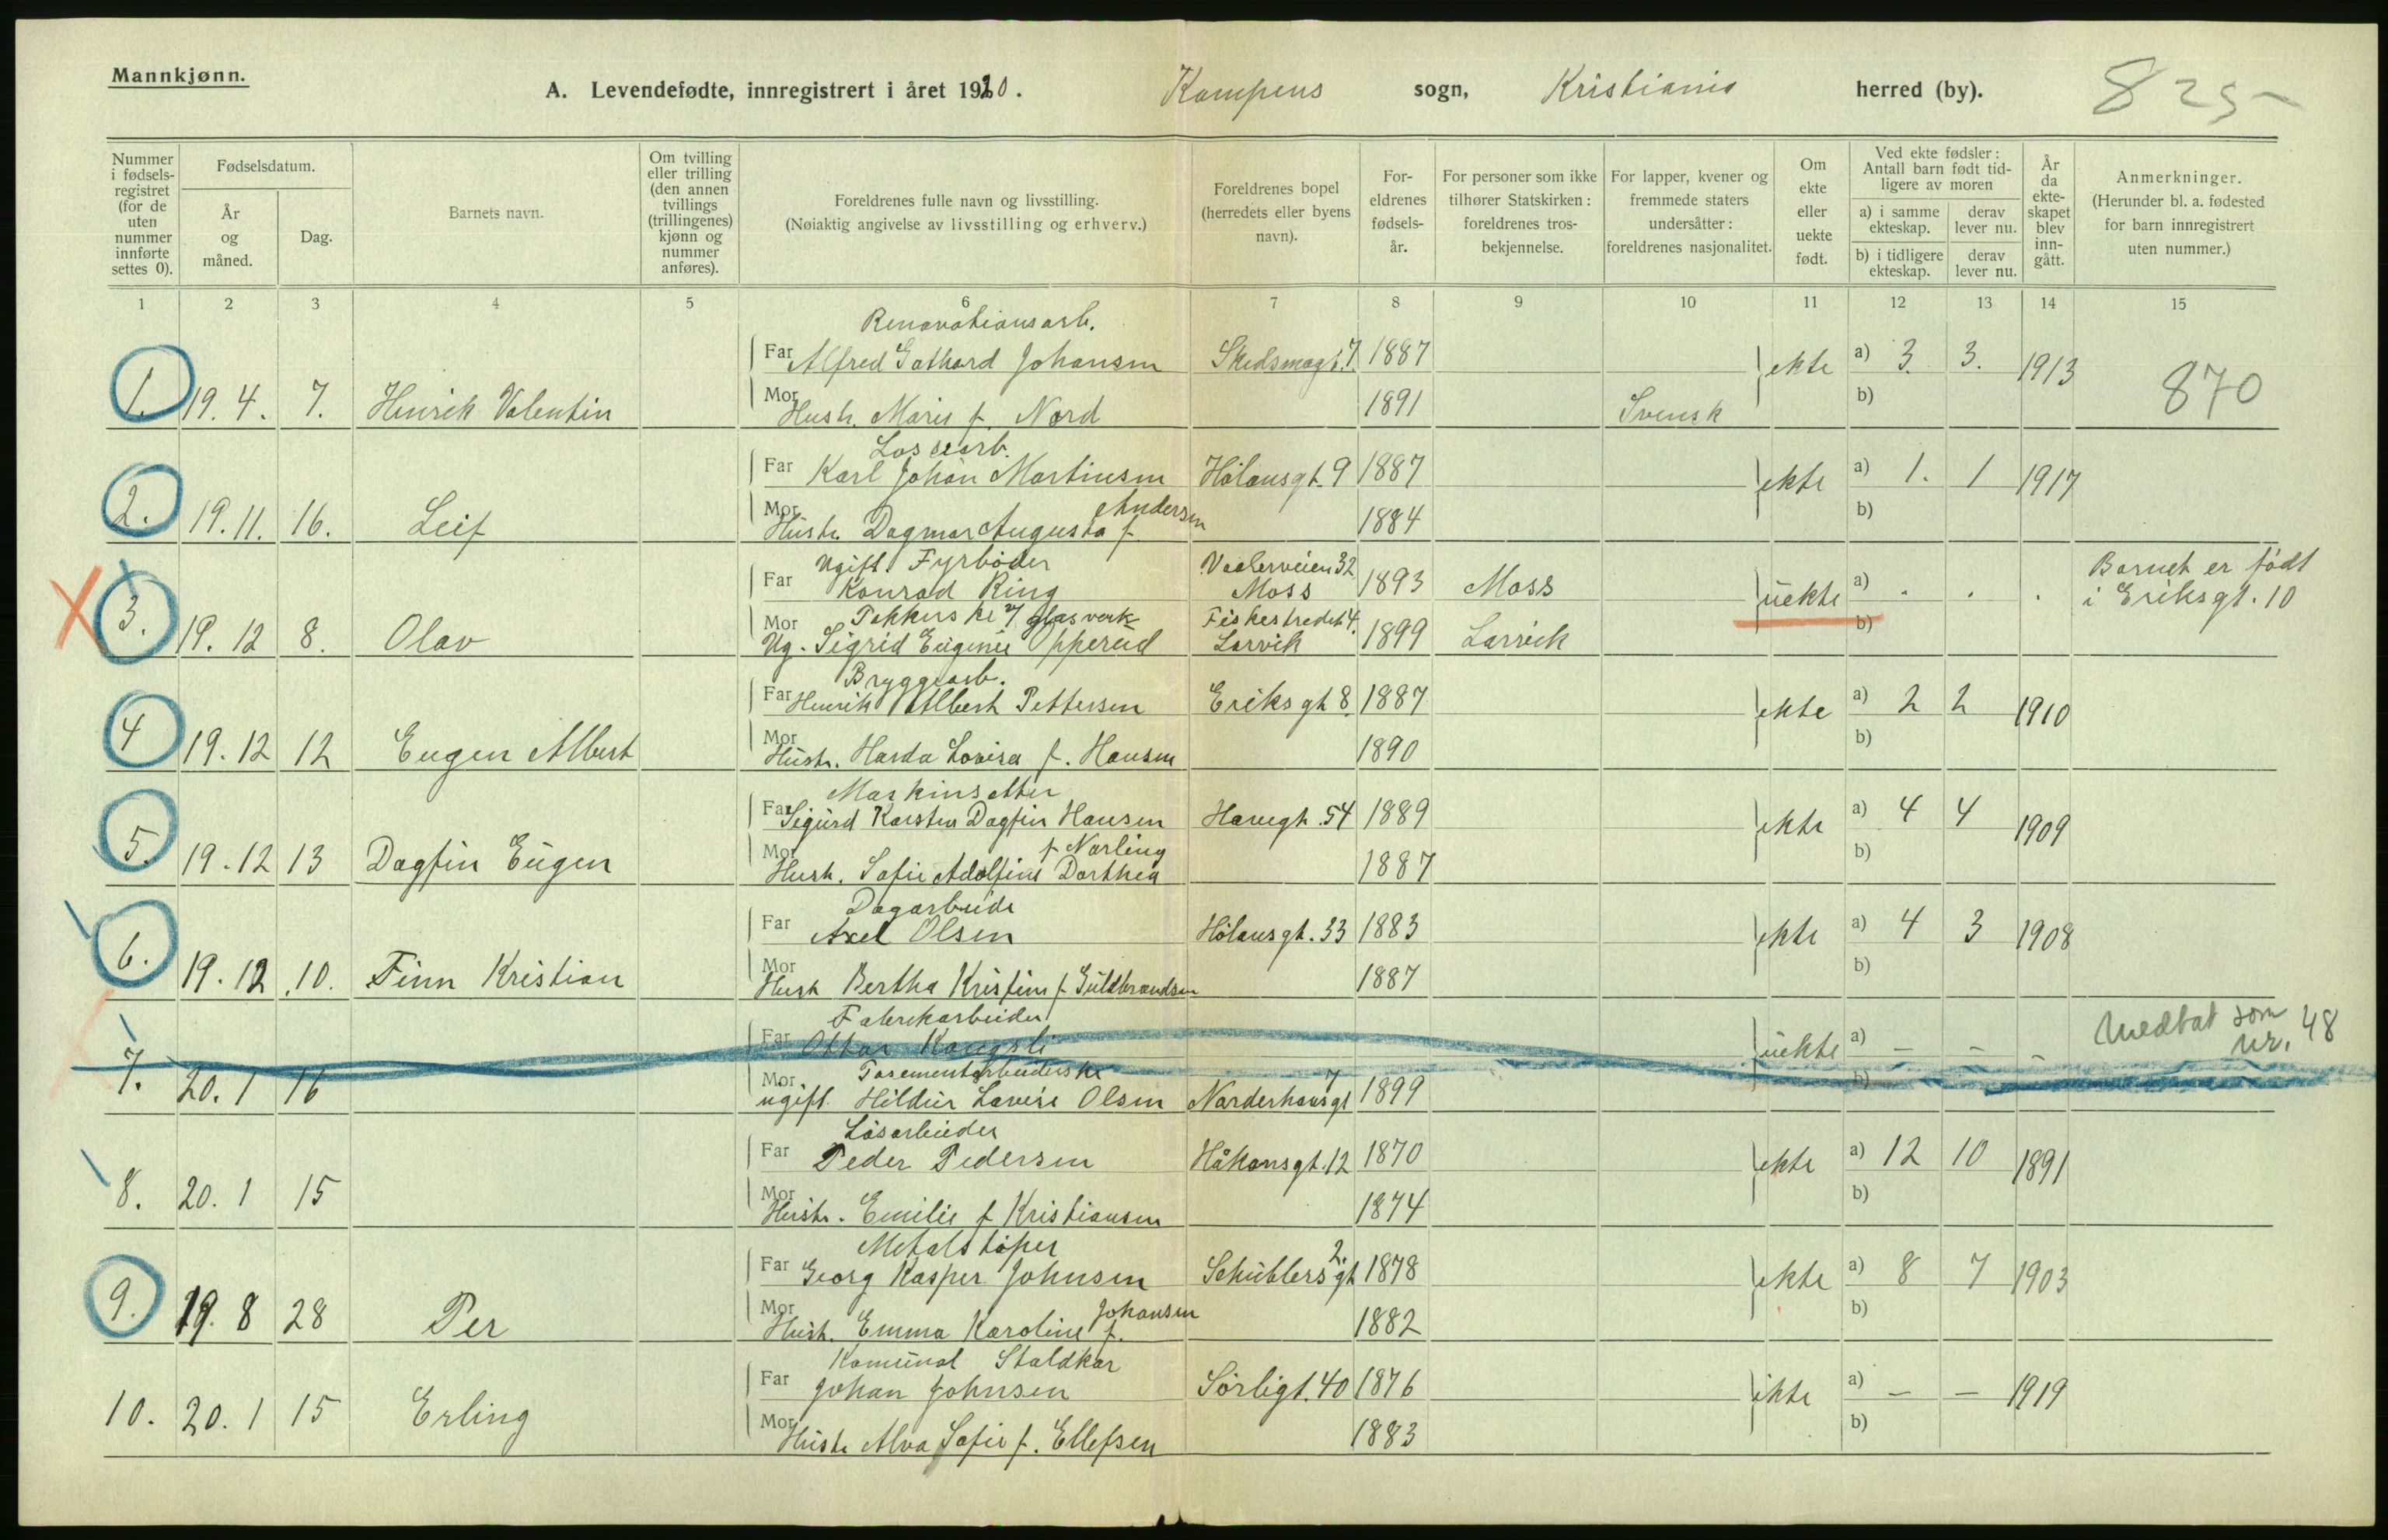 Mannkjønn.
A. Levendefødte, innregistrert i året 1920. Kampens sogn, Kristiania herred (by). 825-
Nummer i fødsels-registret (for de uten nummer innførte settes 0).
Fødselsdatum.
År og måned.
Dag.
Barnets navn.
Om tvilling eller trilling (den annen tvillings (trillingenes) kjønn og nummer anføres).
Foreldrenes fulle navn og livsstilling.
(Nøiaktig angivelse av livsstilling og erhverv.)
Foreldrenes bopel (herredets eller byens navn).
For-eldrenes fødsels-år.
For personer som ikke tilhører Statskirken: foreldrenes tros-bekjennelse.
For lapper, kvener og fremmede staters undersåtter: foreldrenes nasjonalitet.
Om ekte eller uekte født.
Ved ekte fødsler: Antall barn født tid-ligere av moren
a) i samme ekteskap.
derav lever nu.
b) i tidligere ekteskap.
derav lever nu.
År da ekte-skapet blev inn-gått.
Anmerkninger.
(Herunder bl. a. fødested for barn innregistrert uten nummer.)
1 2 3 4 5 6 7 8 9 10 11 12 13 14 15
Renovationsarb.
Far Alfred Gothard Johansen Skedsmogt. 7. 1887
1. 19. 4. 7. Henrik Valentin ekte a) 3. 3. 1913 870
Mor Hustr. Marie f. Nord 1891 Svensk b)
Lossearb.
Far Karl Johan Martinsen Hølansgt. 9 1887
2. 19. 11. 16. Leif ekte a) 1. 1 1917
Mor Hustr. Dagmar Augusta f. Andersen 1884 b)
Ugift. Fyrbøder Vaalerveien 32
Far Konrad Ring Moss 1893 Moss
3. 19. 12 8. Olav uekte a) . . . Barnet er født i Eriksgt. 10
Mor Pakkerske v/ glasverk Fiskestredet 4.
Ug. Sigrid Eugenie Opperud Larvik 1899 Larvik b)
Bryggearb.
Far Henrik Albert Pettersen Eriksgt 8. 1887
4 19. 12 12 Eugen Albert ekte a) 2 2 1910
Mor Hustr. Harda Lovisa f. Hansen 1890 b)
Maskinsetter
Far Sigurd Karsten Dagfin Hansen Havegt. 54 1889
5. 19. 12 13 Dagfin Eugen ekte a) 4 4 1909
Mor Hustr. Sofie Adolfine Dorthea f Norling 1887 b)
Dagarbeide
Far Axel Olsen Hølansgt. 33 1883
6. 19. 12 10. Finn Kristian ekte a) 4 3 1908
Mor Hustr Bertha Kristine f. Guldbrandsen 1887 b)
Fabrikarbeider
Far Ottar Kongsli
7. 20. 1 16 uekte a) — — — Medtat som nr. 48
Mor Posementarbeiderske
ugift. Hildur Lovise Olsen Norderhovsgt 7 1899 b)
Løsarbeider
Far Peder Pedersen Håkonsgt. 12 1870
8. 20. 1 15 ekte a) 12 10 1891
Mor Hustr. Emilie f Kristiansen 1874 b)
Metalstøper
Far Georg Kasper Johnsen Schüblersgt 2. 1878
9. 19. 8 28 Per ekte a) 8 7 1903
Mor Hustr. Emma Karoline f. Johansen 1882 b)
Komunal Staldkar
Far Johan Johnsen Sørligt. 40 1876
10. 20. 1 15 Erling ekte a) — — 1919
Mor Hustr Alva Sofie f. Ellefsen 1883 b)